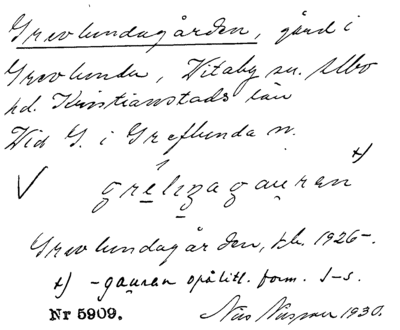 Grevlundagården, gård i
Grevlunda, Vitaby sn. Albo
hd. Kristianstads län
Vid G. i Greflunda n.
x)
V grèlu̱nagau̯ran
Grevlundagården, tk. 1926-.
x) -gau̯ran opålitl. form. I-s.
Nr 5909. Nils 1930.